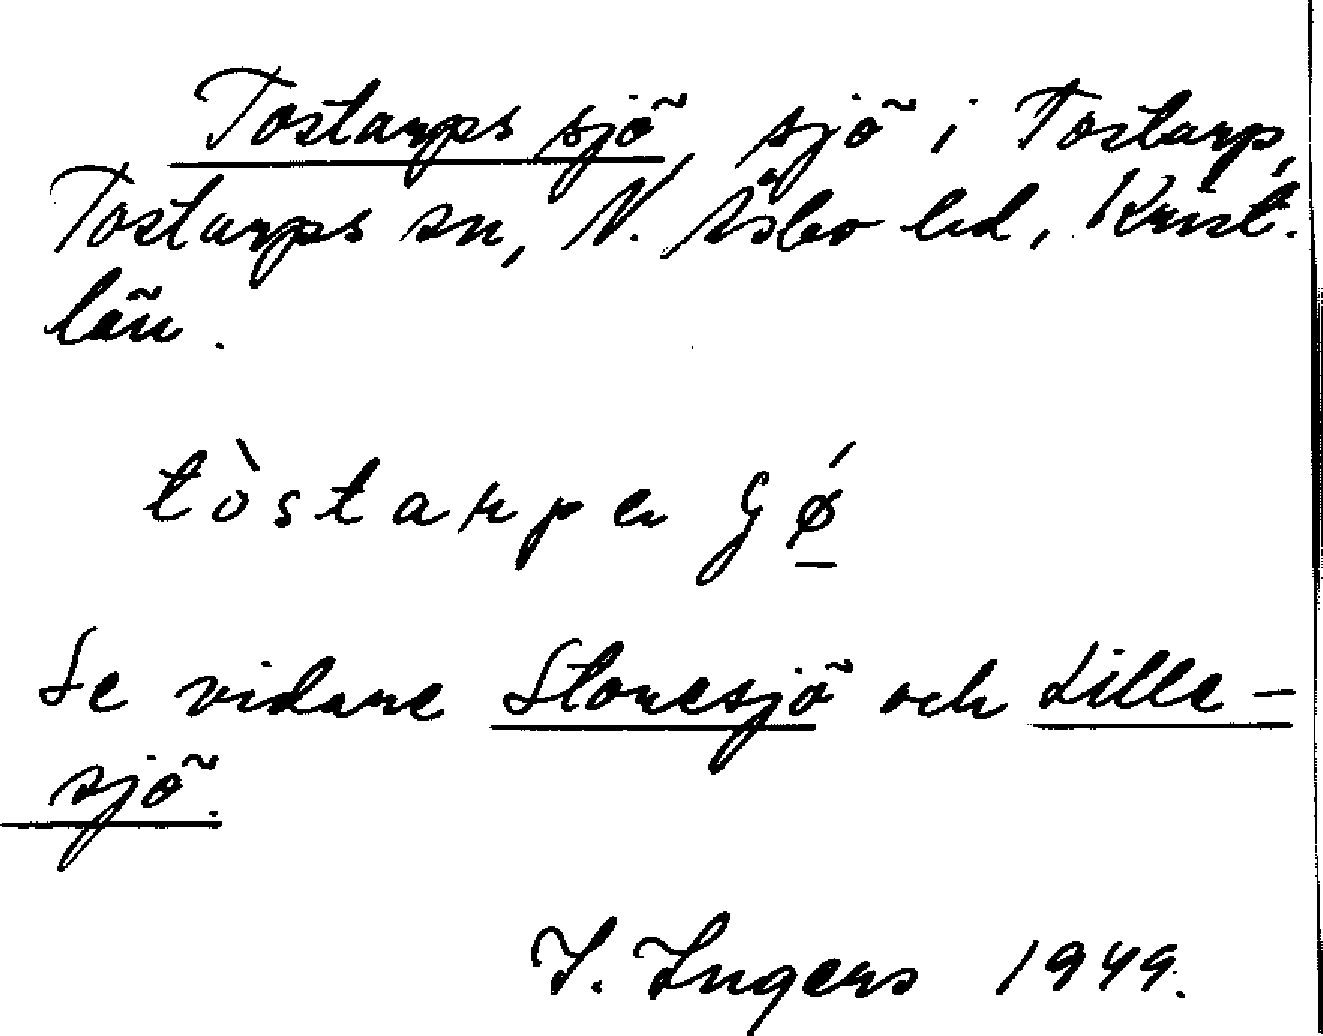 Tostarps sjö, sjö i Tostarp,
Tostarps sn, N. Åsbo hd, Krist.
län.
tòstarpa ʃǿ
Se vidare Storesjö och Lille-
sjö.
I. Ingers 1949.